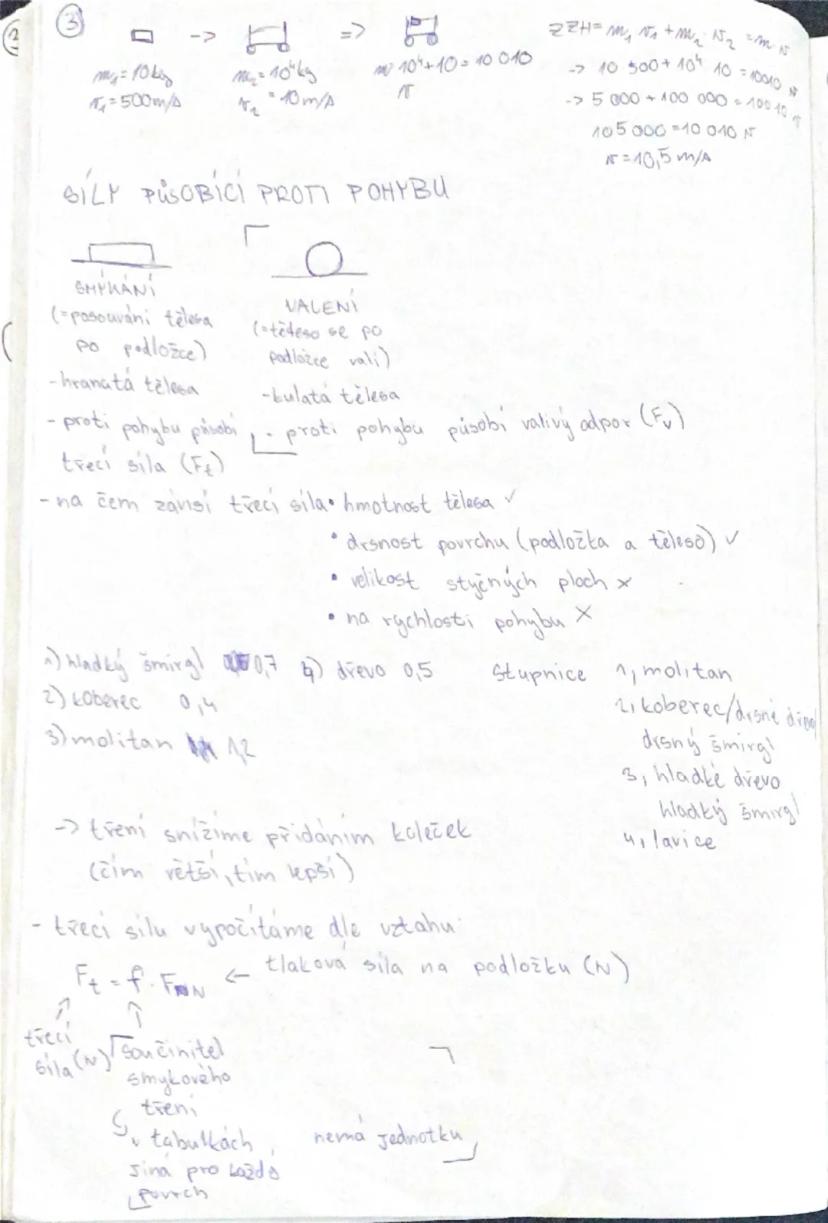 ③ -> =>
m₁ = 10kg m₂ = 10⁴kg m 10⁴+10 = 10 010
v₁ = 500 m/s v₂ = 10 m/s v
ZZH = m₁ v₁ + m₂ · v₂ = m v
-> 10 500 + 10⁴ 10 = 10010 v
-> 5 000 + 100 000 = 10010 v
105 000 = 10 010 v
v = 10,5 m/s
SÍLY PŮSOBÍCÍ PROTI POHYBU
SMÝKÁNÍ
(=posouvání tělesa
po podložce)
- hranatá tělesa
- proti pohybu působí
třecí síla (Ft)
VALENÍ
(=těleso se po
podložce valí)
- kulatá tělesa
- proti pohybu působí valivý odpor (Fv)
- na čem závisí třecí síla • hmotnost tělesa ✓
• drsnost povrchu (podložka a těleso) ✓
• velikost styčných ploch x
• na rychlosti pohybu x
1) hladký šmirgl 0,7 4) dřevo 0,5
2) koberec 0,4
3) molitan 1,2
stupnice 1, molitan
2, koberec/drsné dřevo
drsný šmirgl
3, hladké dřevo
hladký šmirgl
4, lavice
-> tření snížíme přidáním koleček
(čím větší, tím lepší)
- třecí sílu vypočítáme dle vztahu:
Ft = f · FN <- tlaková síla na podložku (N)
třecí
síla (N)
součinitel
smykového
tření
v tabulkách, nemá jednotku
jiná pro každý
povrch